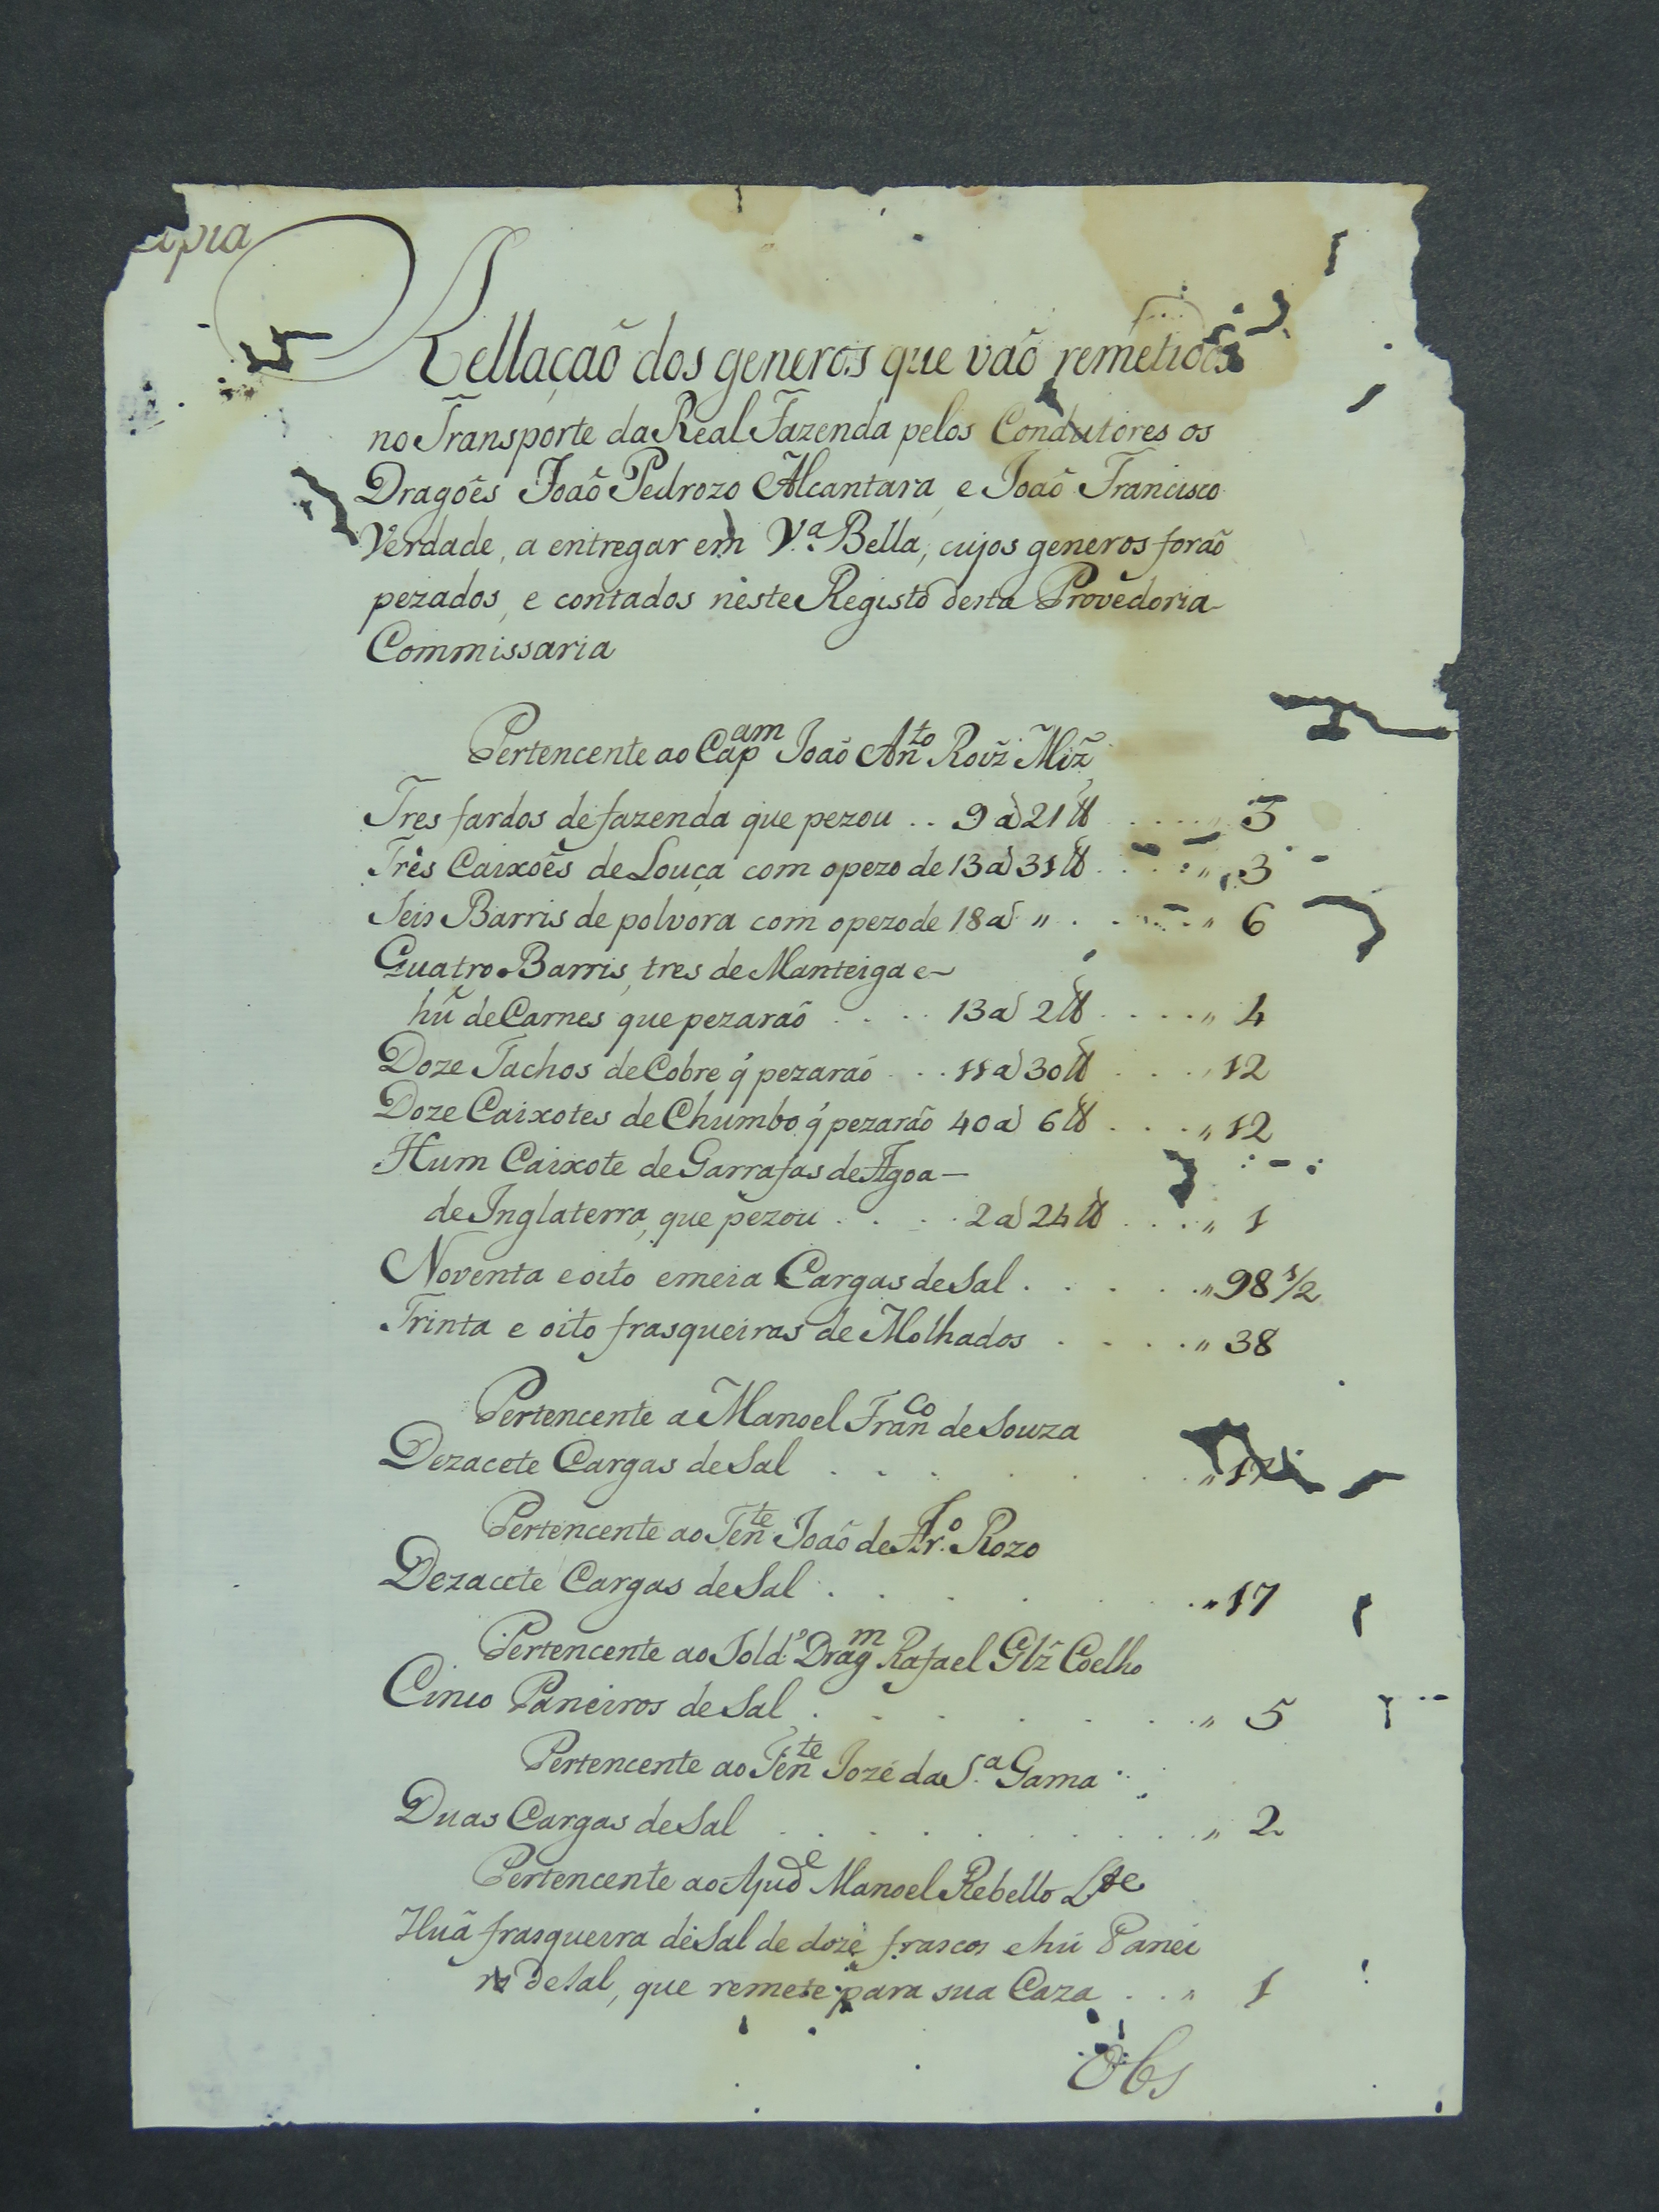 Copia
Rellação dos generos que vão remetidos
no Transporte da Real Fazenda pelos Condutores os
Dragoẽs João Pedrozo Alcantara, e João Francisco
Verdade, a entregar em V.ª Bella, cujos generos forão
pezados, e contados neste Registo desta Provedoria
Commissaria
Pertencente ao Cap.am João Ant.to Roiz Miz
Tres fardos de fazenda que pezou .. 9 @ 21 ℔ .... " 3
Tres Caixoẽs de Louça com o pezo de 13 @ 31 ℔ .... " 3
Seis Barris de polvora com o pezo de 18 @ " .... " 6
Quatro Barris, tres de Manteiga e
hũ de Carnes que pezarão .... 13 @ 2 ℔ .... " 4
Doze Tachos de Cobre q' pezarão ... 11 @ 30 ℔ .... 12
Doze Caixotes de Chumbo q' pezarão 40 @ 6 ℔ .... " 12
Hum Caixote de Garrafas de Agoa
de Inglaterra, que pezou .... 2 @ 24 ℔ .... " 1
Noventa e oito e meia Cargas de Sal ..... " 98 1/2
Trinta e oito frasqueiras de Molhados .... " 38
Pertencente a Manoel Fran.co de Souza
Dezacete Cargas de Sal ...... " 17
Pertencente ao Ten.te João de Ar.º Rozo
Dezacete Cargas de Sal ..... " 17
Pertencente ao Sold.º Drag.m Rafael Glz Coelho
Cinco Paneiros de Sal ...... " 5
Pertencente ao Ten.te Jozé da S.ª Gama
Duas Cargas de Sal ........ " 2
Pertencente ao Ajud.e Manoel Rebello L.te
Huã frasqueira de Sal de doze frascos e hũ Panei
ro de Sal, que remete para sua Caza .. " 1
Obs